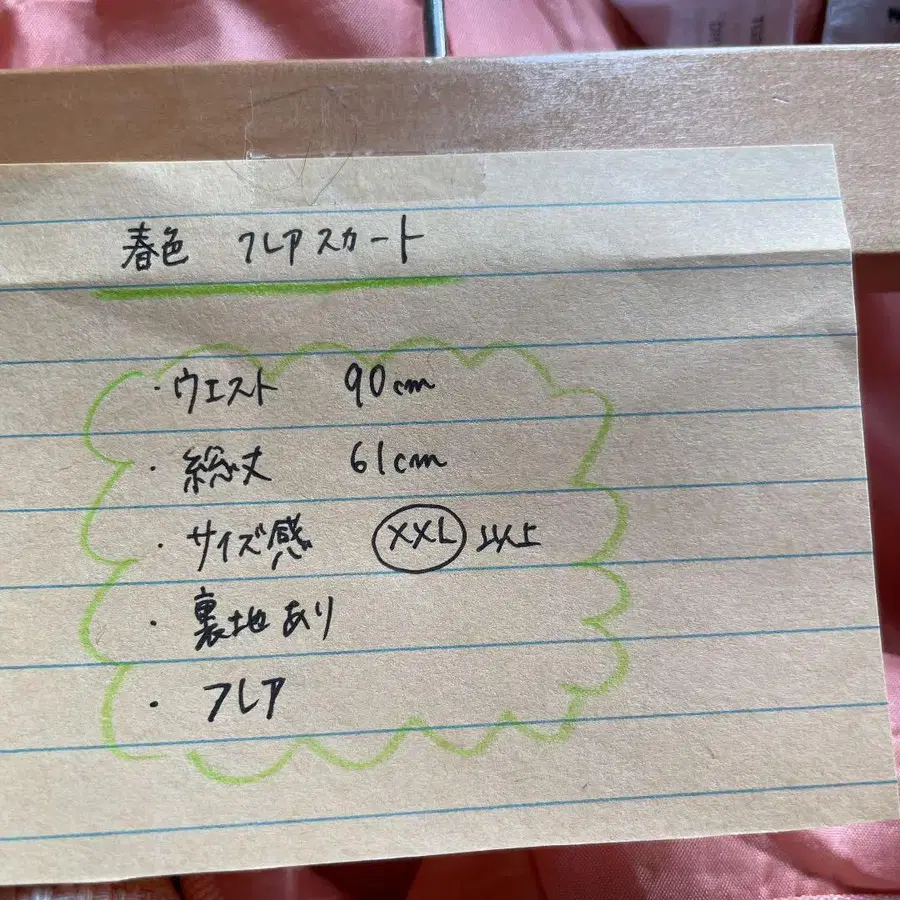 春色 フレアスカート
・ウエスト 90cm
・総丈 61cm
・サイズ感 XXL 以上
・裏地あり
・フレア